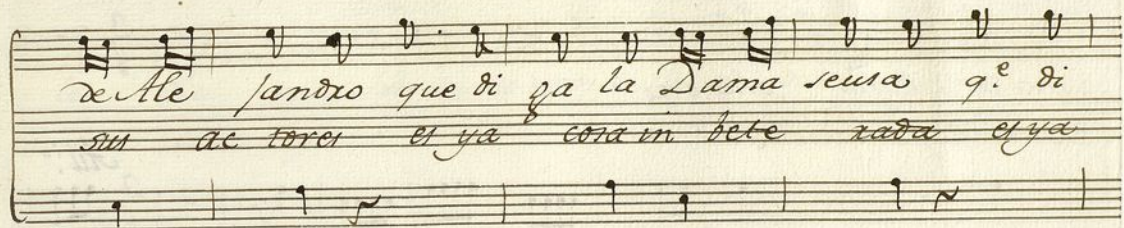 de Ale jandro que di ga la Dama seusa q.e di
sus ac tores es ya cosa in bete rada es ya